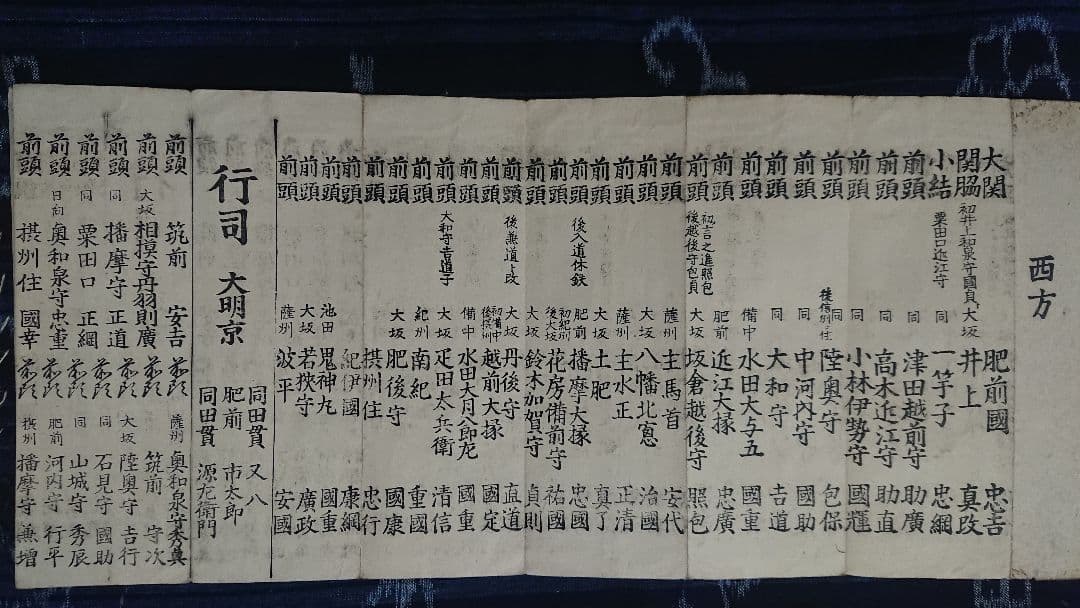 西方
大関 肥前國 忠吉
関脇 初井上和泉守國貞 大坂 井上 真改
小結 粟田口近江守 同 一竿子 忠綱
前頭 同 津田越前守 助廣
前頭 同 高木近江守 助直
前頭 同 小林伊勢守 國輝
前頭 後信州住 同 陸奥守 包保
前頭 同 中河内守 國助
前頭 同 大和守 吉道
前頭 備中 水田大与五 國重
前頭 肥前 近江大掾 忠廣
前頭 初言之進照包 後越後守包貞 大坂 坂倉越後守 照包
前頭 薩州 主馬首 安代
前頭 大坂 八幡北窓 治國
前頭 薩州 主水正 正清
前頭 大坂 土肥 真了
前頭 後入道休鉄 肥前 播摩大掾 忠國
前頭 初紀州 後大坂 花房備前守 祐國
前頭 大坂 鈴木加賀守 貞則
前頭 後兼道ト改 大坂 丹後守 直道
前頭 初備中 後摂州 越前大掾 國定
前頭 備中 水田大月八郎左 國重
前頭 大和守吉道子 大坂 疋田太兵衛 清信
前頭 紀州 南紀 重國
前頭 大坂 肥後守 國康
前頭 摂州住 忠行
前頭 紀伊國 康綱
前頭 池田 鬼神丸 國重
前頭 大坂 若狭守 廣政
前頭 薩州 波平 安國
行司 大明京
同田貫 又八
肥前 市太郎
同田貫 源左衛門
前頭 筑前 安吉
前頭 大坂 相摸守丹翁則廣
前頭 同 播摩守 正道
前頭 同 粟田口 正綱
前頭 日向 奥和泉守忠重
前頭 摂州住 國幸
前頭 薩州 奥和泉守秀興
前頭 筑前 守次
前頭 大坂 陸奥守 吉行
前頭 同 石見守 國助
前頭 同 山城守 秀辰
前頭 肥前 河内守 行平
前頭 摂州 播摩守 兼増